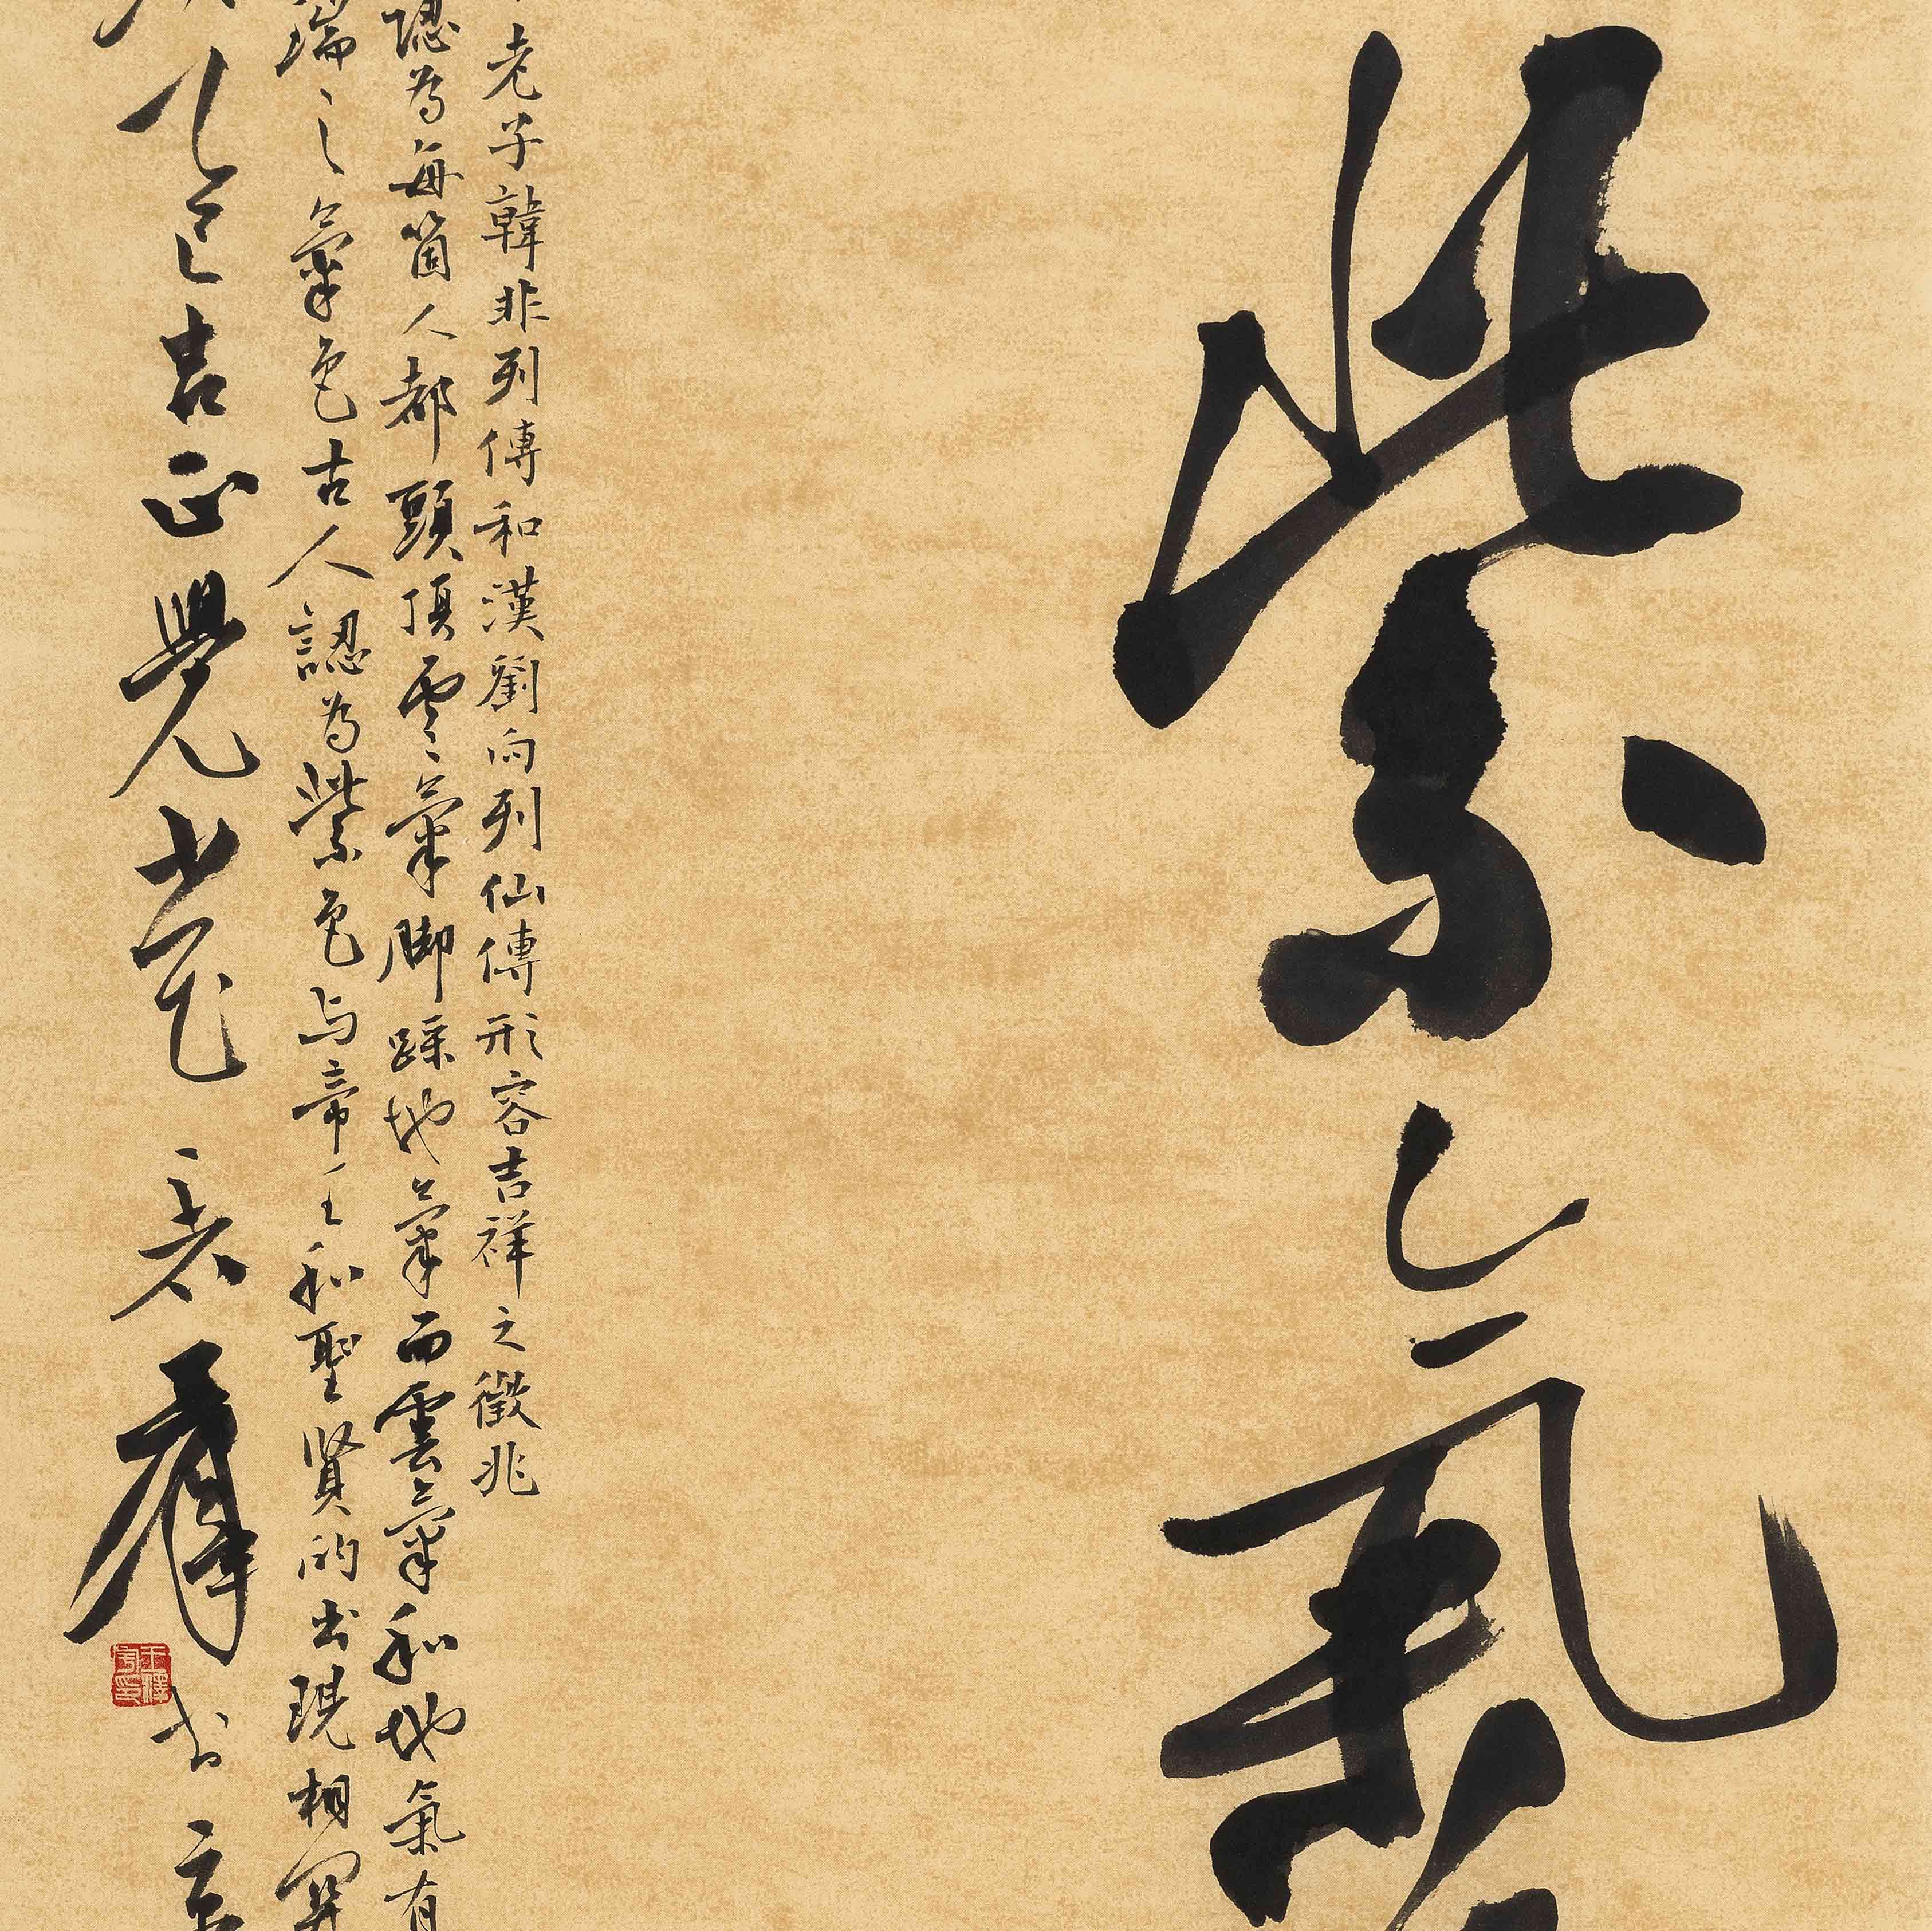 紫氣
老子韓非列傳和漢劉向列仙傳形容吉祥之徵兆
認為每箇人都頭頂雲氣腳踩地氣而雲氣和地氣有
瑞之氣色古人認為紫色与帝王和聖賢的出現相關
乙巳吉正覺書京